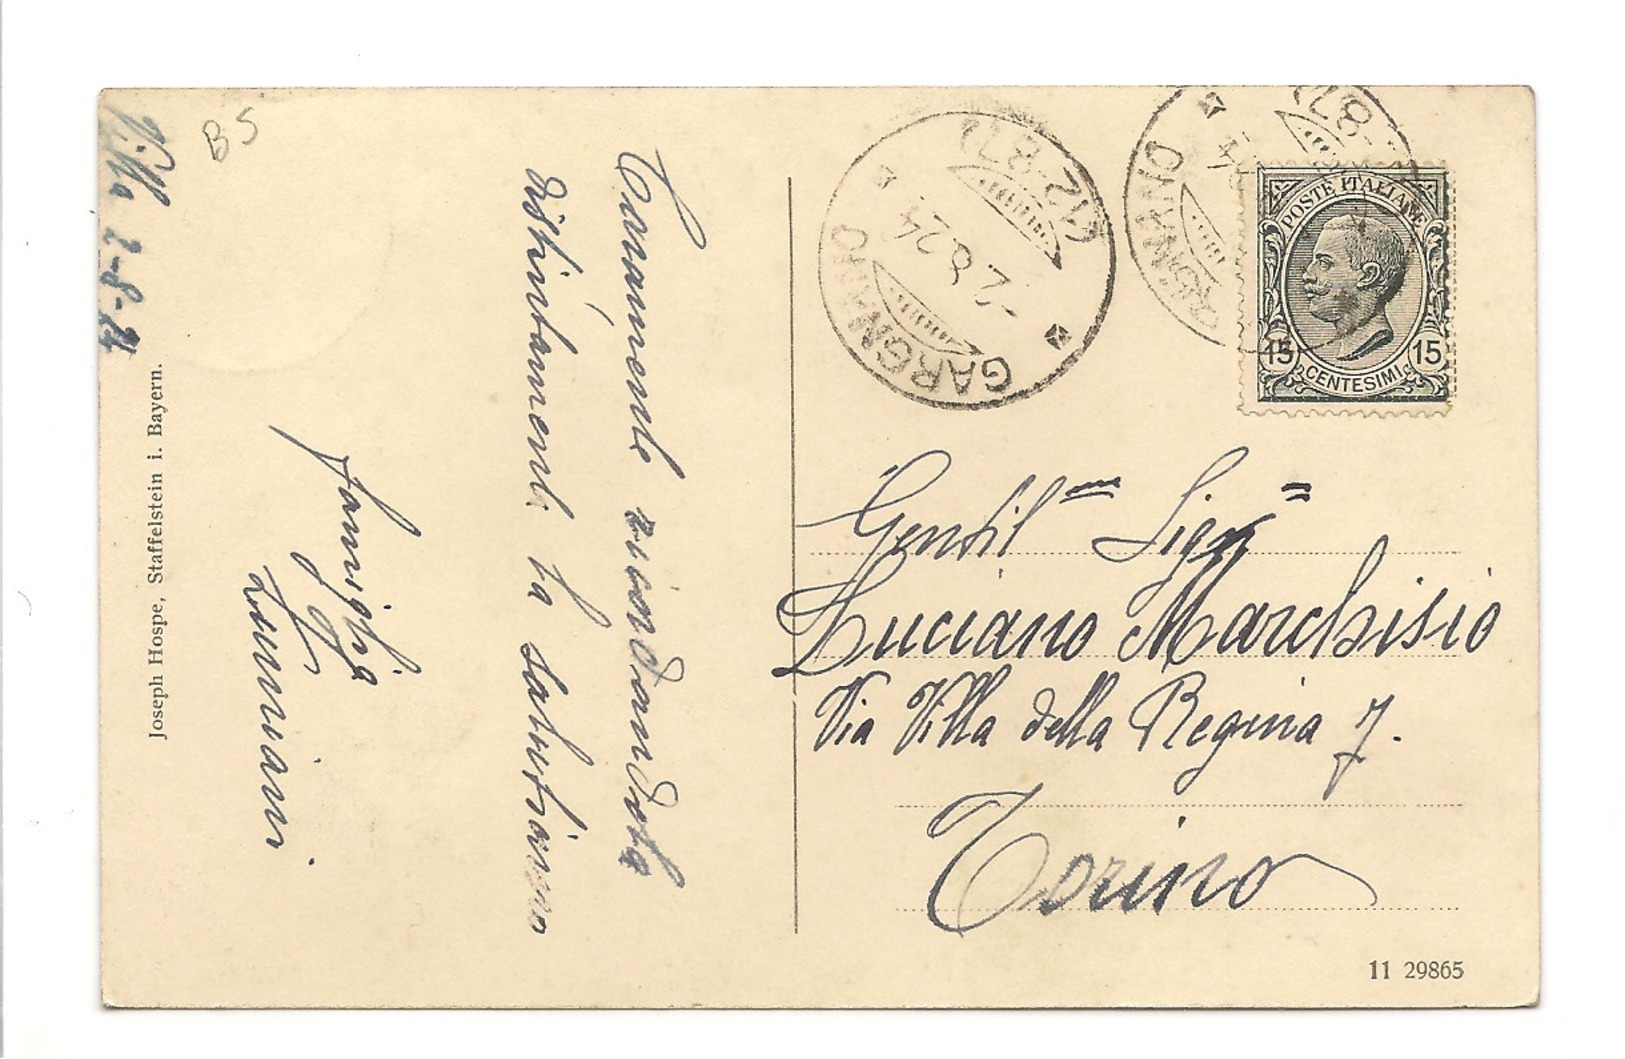 B5
Villa 2-8-24
Caramente ricordandola
distintamente la salutiamo
famiglia
Joseph Hospe, Staffelstein i. Bayern.
GARGNANO
2.8.24
(12-87)
GARGNANO
POSTE ITALIANE
15 15
CENTESIMI
Gentilᵐᵉ Sigʳ
Luciano Marchisio
Via Villa della Regina 7.
Torino
11 29865